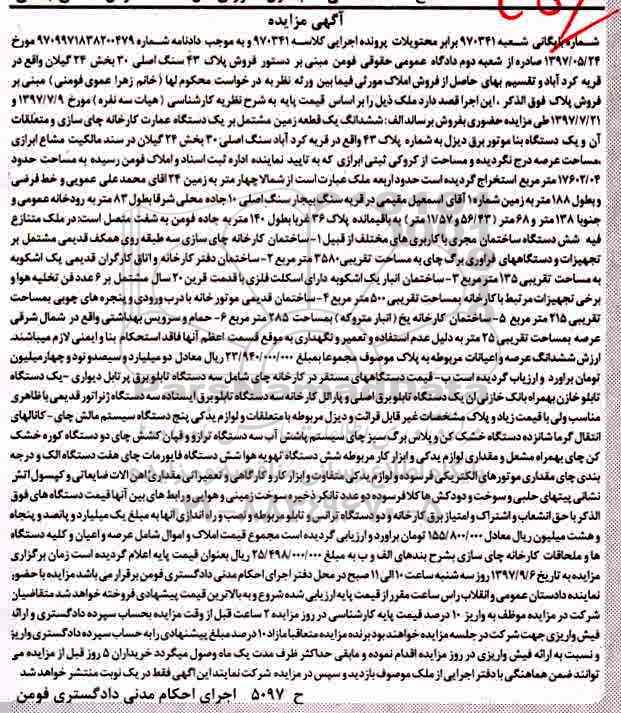 آگهی مزایده
شماره بایگانی شعبه ۹۷۰۳۴۱ برابر محتویات پرونده اجرایی کلاسه ۹۷۰۳۴۱ و به موجب دادنامه شماره ۹۷۰۹۹۷۱۸۳۸۲۰۰۴۷۹ مورخ
۱۳۹۷/۰۵/۲۴ صادره از شعبه دوم دادگاه عمومی حقوقی فومن مبنی بر دستور فروش پلاک ۴۳ سنگ اصلی ۳۰ بخش ۲۴ گیلان واقع در
قریه کرد آباد و تقسیم بهای حاصل از فروش املاک مورثی فیما بین ورثه نظر به در خواست محکوم لها (خانم زهرا عموی فومنی) مبنی بر
فروش پلاک فوق الذکر ، این اجرا قصد دارد ملک ذیل را بر اساس قیمت پایه به شرح نظریه کارشناسی (هیات سه نفره) مورخ ۱۳۹۷/۷/۹ و
۱۳۹۷/۷/۲۱ طی مزایده حضوری بفروش برساند الف: ششدانگ یک قطعه زمین مشتمل بر یک دستگاه عمارت کارخانه چای سازی و متعلقات
آن و یک دستگاه بنا موتور برق دیزل به شماره پلاک ۴۳ واقع در قریه کرد آباد سنگ اصلی ۳۰ بخش ۲۴ گیلان در سند مالکیت مشاع ابرازی
،مساحت عرصه درج نگردیده و مساحت از کروکی ثبتی ابرازی که به تایید نماینده اداره ثبت اسناد و املاک فومن رسیده به مساحت حدود
۱۷۶۰۲/۰۴ متر مربع استخراج گردیده است حدود اربعه ملک عبارت است از شمالا چهار متر به زمین ۲۴ اقای محمد علی عمویی و خط فرضی
و بطول ۱۸۸ متر به زمین شماره ۱ آقای اسمعیل مقیمی در قریه سنگ بیجار سنگ اصلی ۱۰ جاده محلی شرقا بطول ۸۳ متر به رودخانه عمومی و
جنوبا ۱۳۸ متر و ۶۸ متر (۵۶/۴۳ و ۱۱/۵۷ متر) به باقیمانده پلاک ۳۶ غربا بطول ۱۴۰ متر به جاده فومن به شفت متصل است: در ملک متنازع
فیه شش دستگاه ساختمان مجری با کاربری های مختلف از قبیل ۱- ساختمان کارخانه چای سازی سه طبقه روی همکف قدیمی مشتمل بر
تجهیزات و دستگاههای فراوری برگ چای به مساحت تقریبی ۳۵۸۰ متر مربع ۲- ساختمان دفتر کارخانه و اتاق کارگران قدیمی یک اشکوبه
به مساحت تقریبی ۱۳۵ متر مربع ۳- ساختمان انبار یک اشکوبه دارای اسکلت فلزی با قدمت قرین ۲۰ سال مشتمل بر ۶ عدد فن تخلیه هوا و
برخی تجهیزات مرتبط با کارخانه بمساحت تقریبی ۵۰۰ متر مربع ۴- ساختمان قدیمی موتور خانه با درب ورودی و پنجره های چوبی بمساحت
تقریبی ۲۱۵ متر مربع ۵- ساختمان کارخانه یخ (انبار متروکه) بمساحت ۲۸۵ متر مربع ۶- حمام و سرویس بهداشتی واقع در شمال شرقی
عرصه بمساحت تقریبی ۲۵ متر به دلیل عدم استفاده و تعمیر و نگهداری به موقع قسمت اعظم آنها فاقد استحکام بنا و ایمنی لازم میباشند.
ارزش ششدانگ عرصه و اعیانات مربوطه به پلاک موصوف مجموعا بمبلغ ۲۳/۹۴۰/۰۰۰/۰۰۰ ریال معادل دو میلیارد و سیصد و نود و چهار میلیون
تومان براورد و ارزیاب گردیده است ب- قیمت دستگاههای مستقر در کارخانه چای شامل سه دستگاه تابلو برق پر تابل دیواری -یک دستگاه
تابلو خازن بهمراه بانک خازنی ان یک دستگاه تابلو برق اصلی و پارالل کارخانه سه دستگاه تابلو برق ایستاده سه دستگاه ژنراتور قدیمی با ظاهری
مناسب ولی با قیمت زیاد و پلاک مشخصات غیر قابل قرائت و دیزل مربوطه با متعلقات و لوازم یدکی پنج دستگاه سیستم مالش چای- کانالهای
انتقال گرما شانزده دستگاه خشک کن و پلاس برگ سبز چای سیستم پاشش آب سه دستگاه ترازو و قپان کشش چای دو دستگاه کوره خشک
کن چای بهمراه مشعل و مقداری لوازم یدکی و ابزار کار مربوطه شش دستگاه تهویه هوا شش دستگاه فایورمات چای هفت دستگاه الک و درجه
بندی چای مقداری موتورهای الکتریکی فرسوده و لوازم یدکی متفاوت و ابزار کار و کارگاهی و تعمیراتی مقداری اهن الات ضایعاتی و کپسول اتش
نشانی پیتهای حلبی و سوخت و دودکش ها کلا فرسوده دو عدد تانکر ذخیره سوخت زمینی و هوایی و رابط های بین آنها قیمت دستگاه های فوق
الذکر با حق انشعاب و اشتراک و امتیاز برق کارخانه و دو دستگاه ترانس و تابلو مربوطه و نصب و راه اندازی آنها به مبلغ یک میلیارد و پانصد و پنجاه
و هشت میلیون ریال معادل ۱۵۵/۸۰۰/۰۰۰ تومان براورد و ارزیابی گردیده است مجموع قیمت املاک و اموال شامل عرصه و اعیان و کلیه دستگاه
ها و ملحقات کارخانه چای سازی بشرح بندهای الف و ب به مبلغ ۲۵/۴۹۸/۰۰۰/۰۰۰ ریال بعنوان قیمت پایه اعلام گردیده است زمان برگزاری
مزایده به تاریخ ۱۳۹۷/۹/۶ روز سه شنبه ساعت ۱۰ الی ۱۱ صبح در محل دفتر اجرای احکام مدنی دادگستری فومن برقرار می باشد مزایده با حضور
نماینده دادستان عمومی و انقلاب راس ساعت مقرر از قیمت پایه ارزیابی شده شروع و به بالاترین قیمت پیشنهادی فروخته خواهد شد متقاضیان
شرکت در مزایده موظف به واریز ۱۰ درصد قیمت پایه کارشناسی در روز مزایده ۲ ساعت قبل از وقت مزایده بحساب سپرده دادگستری و ارائه
فیش واریزی جهت شرکت در جلسه مزایده خواهند بود برنده مزایده متعاقبا مازاد ۱۰ درصد مبلغ پیشنهادی را به حساب سپرده دادگستری واریز
و نسبت به ارائه فیش واریزی در روز مزایده اقدام نموده و مابقی حداکثر ظرف مدت یک ماه وصول میگردد خریداران ۵ روز قبل از مزایده می
توانند ضمن هماهنگی با دفتر اجرایی از ملک موصوف بازدید و سپس در مزایده شرکت نمایند این آگهی فقط در یک نوبت منتشر خواهد شد
ح ۵۰۹۷ اجرای احکام مدنی دادگستری فومن